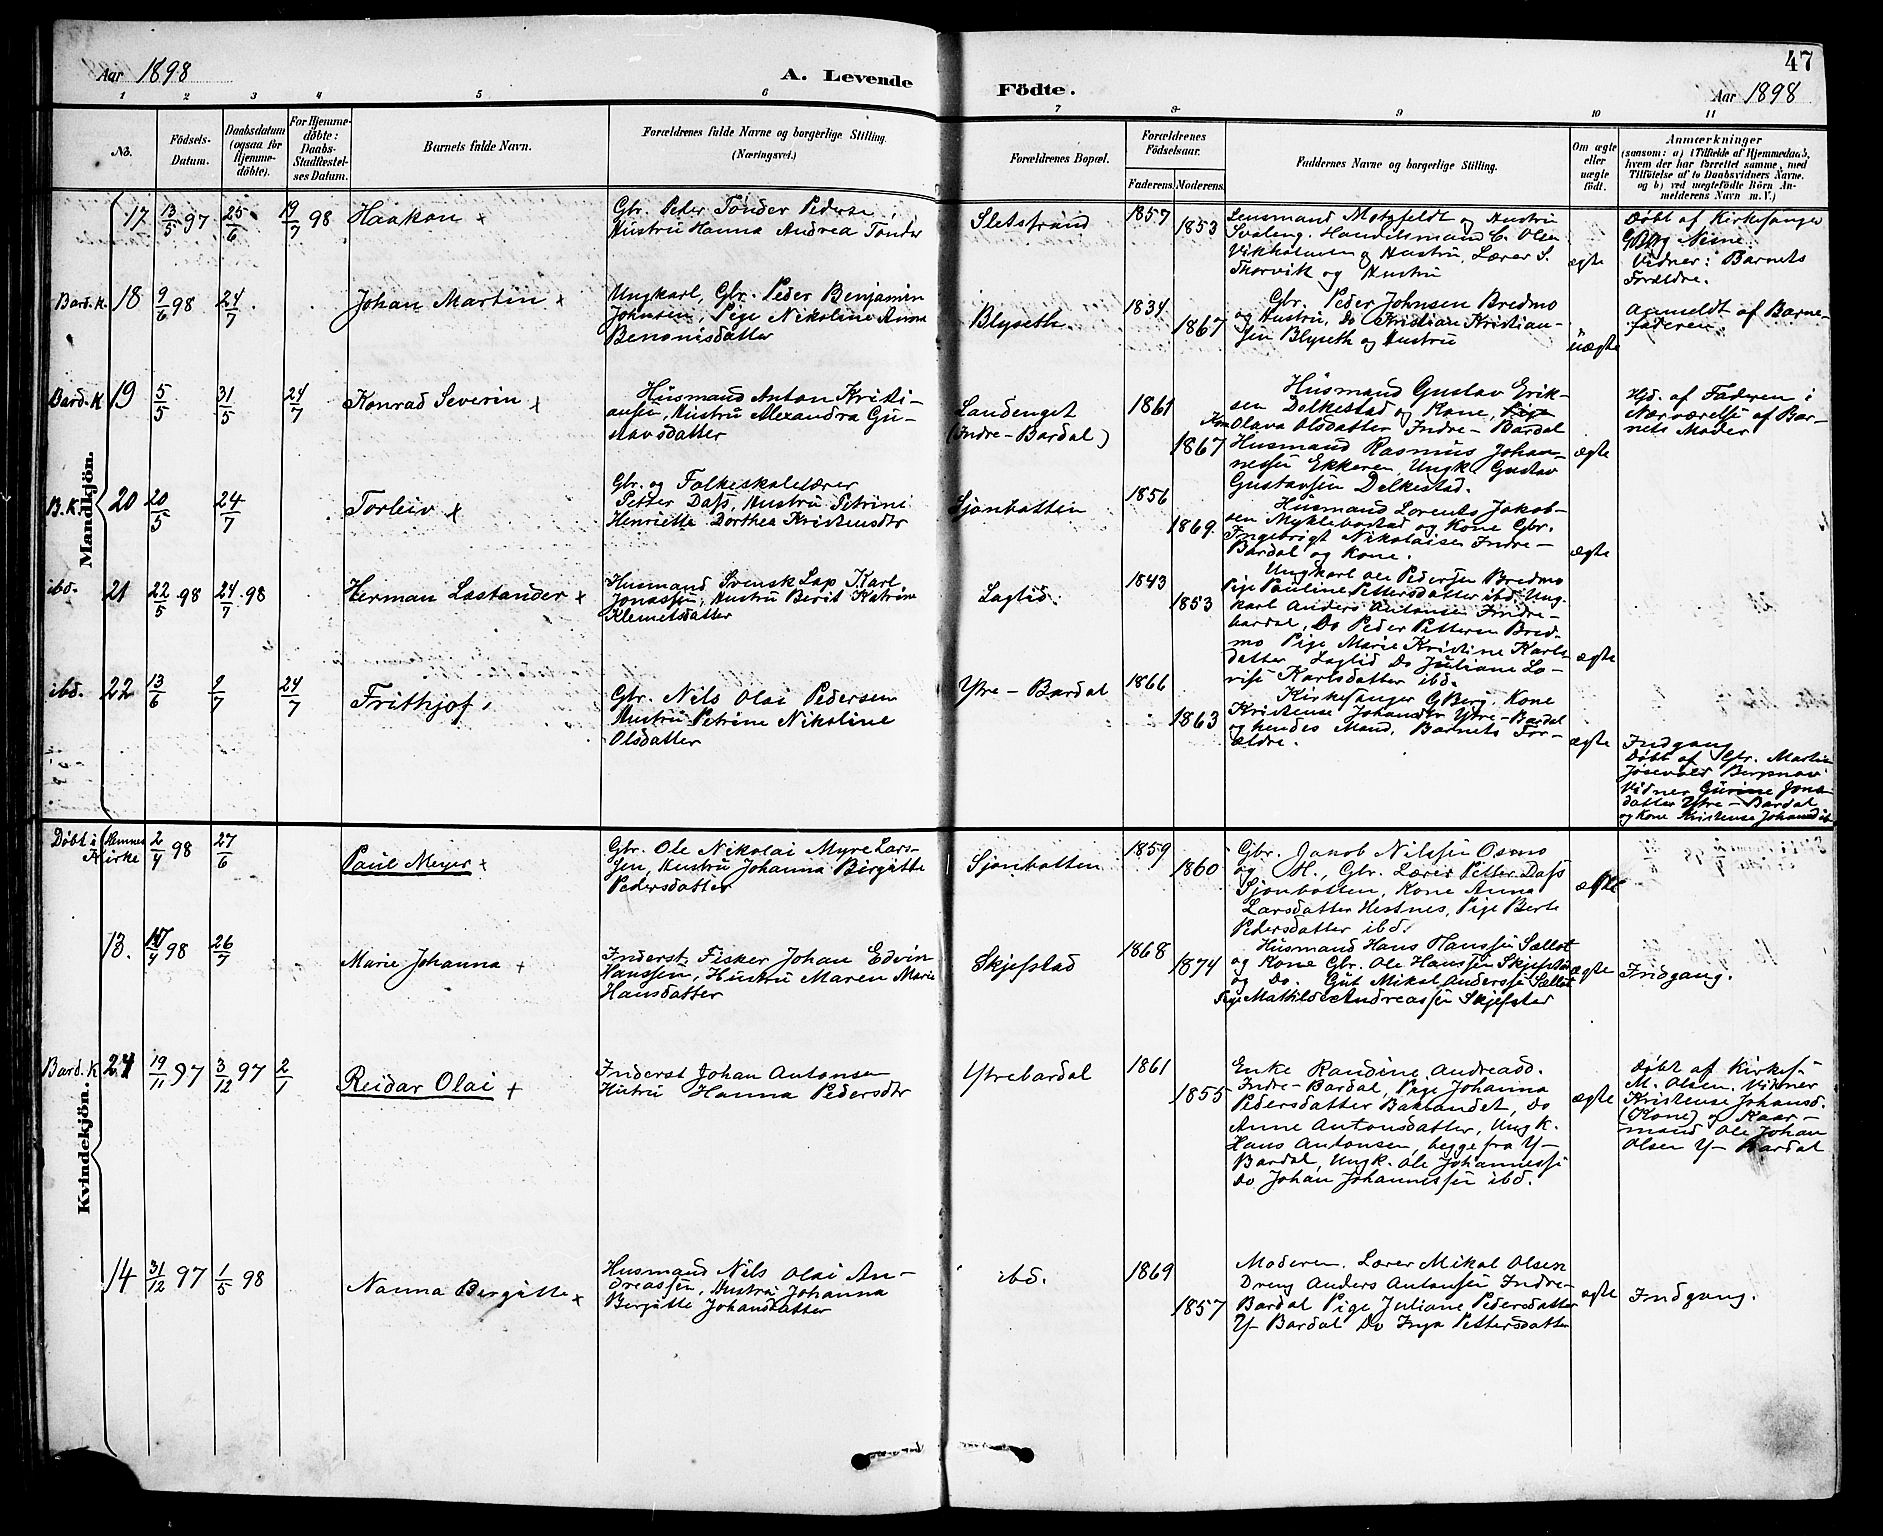 Aar 1898
A. Levende
Födte.
47
Aar 1898
1 2 3 4 5 6 7 8 9 10 11
No.
Födsels-
Datum.
Daabsdatum
(ogsaa for
Hjemme-
döbte).
For Hjemme-
döbte:
Daabs-
Stadfæstel-
ses Datum.
Barnets fulde Navn.
Forældrenes fulde Navne og borgerlige Stilling.
(Næringsvei.)
Forældrenes Bopæl.
Forældrenes
Födselsaar.
Faderens. Moderens.
Faddernes Navne og borgerlige Stilling.
Om ægte
eller
uægte
födt.
Anmærkninger
(saasom: a) i Tilfælde af Hjemmedaab,
hvem der har forrettet samme, med
Tilföielse af to Daabsvidners Navne,
og b) ved uægtefödte Börn An-
melderens Navn m. V.)
Mandkjön.
17 13/5 97 25/6 19/7 98 Haakon x
Gbr. Peter Tönder Peders
Hustru Hanna Andrea Tönder
Sletstrand
1857
1853
Lensmand Motzfeldt og Hustru
Svaleng. Handelsmand C. Olsen
Vikholmen og Hustru, Lærer S.
Thorvik og Hustru
ægte
Döbt af Kirkesanger
G Berg Nesne.
Vidner: Barnets
Forældre.
Bard. K. 18 9/6 98 24/7 Johan Martin x
Ungkarl, Gbr. Peder Benjamin
Johnsen, Pige Nikoline Anna
Benonisdatter
Blyseth.
1834
1867
Gbr. Peder Johnsen Bredmo
og Hustru, Do Kristian Kristian-
sen Blyseth og Hustru
uægte
Anmeldt af Barne-
faderen.
Bard. K 19 5/5 31/5 24/7 Konrad Severin x
Husmand Anton Kristi-
ansen, Hustru Alexandra Gu-
stavsdatter
Landenget
(Indre-Bardal)
1861
1867
Husmand Gustav Erik-
sen Delkestad og Kone, Pige
Olava Olsdatter Indre-Bardal
Husmand Rasmus Johan-
nessen Ekkeren, Ungk. Gustav
Gustavsen Delkestad.
ægte
Hjd. af Faderen i
Nærværelse af Bar-
nets Moder
B. K. 20 20/5 24/7 Torleiv x
Gbr. og Folkeskolelærer
Petter Dass, Hustru Petrine
Henriette Dorthea Kristensdtr
Sjonbotten
1856
1869.
Husmand Lorents Jakob-
sen Myklebostad og Kone Gbr.
Ingebrigt Nikolaisen Indre-
Bardal og Kone.
ægte
ibd. 21 22/5 98 24/7 98 Herman Lastander x
Husmand Svensk Lap Karl
Jonassen, Hustru Berit Katrine
Klemetsdatter
Laglid.
1843
1853
Ungkarl Ole Pedersen Bredmo
Pige Pauline Pettersdatter ibd. Ung-
karl Anders Antonsen Indre-
bardal, Do Peder Pettersen Bred-
mo Pige Marie Kristine Karls-
datter Laglid Do Juliane Lo-
vise Karlsdatter ibd.
ægte
ibd. 22 13/6 9/7 24/7 Frithjof
Gbr. Nils Olai Pedersen
Hustru Petrine Nikoline
Olsdatter
Ytre-Bardal
1866
1863
Kirkesanger G Berg. Kone
Kristense Johansdtr Ytre-Bardal
og hendes Mand, Barnets For-
ældre.
ægte
Indgang
Döbt af Gbr. Martin
Vidner Gurine Jons-
datter Ytre-Bardal
og Kone Kristense Johansdtr
Kvindekjön.
Döbt i Hemnes
Kirke
2/4 98 27/6 Paul Meyer x
Gbr. Ole Nikolai Myre Lars-
sen, Hustru Johanna Birgitte
Pedersdatter
Sjonbotten
1859
1860
Gbr. Jakob Nilssen Osmo
og H., Gbr. Lærer Petter Dass
Sjonbotten, Kone Anna
Larsdatter Hestnes, Pige Berte
Pedersdatter ibd.
ægte
13. 17/4 98 26/7 Marie Johanna +
Inderst Fisker Johan Edvin
Hanssen, Hustru Maren Marie
Hansdatter
Skjefstad
1868
1874
Husmand Hans Hanssen
og Kone Gbr. Ole Hanssen Skjefstad
og Do. Gut Mikal Anderssen
Pige Mathilde Andreassen Skjefstad
ægte
Indgang.
Bard. K 24 19/11 97 3/12 97 2/1 Reidar Olai +
Inderst Johan Antonsen
Hustru Hanna Pedersdtr
Ytrebardal
1861
1855
Enke Randine Andreasd.
Indre-Bardal, Pige Johanna
Pedersdatter Baklandet, Do
Anne Antonsdatter, Ungk.
Hans Antonsen, begge fra Y-
Bardal, Ungk. Ole Johannessen
Do Johan Johannessen ibd.
ægte
Döbt af Kirkes.
M. Olsen. Vidner
Kristense Johansd.
(Kone) og Kaar-
mand Ole Johan
Olsen Y-Bardal
14 31/12 97 1/5 98 Nanna Bergitte x
Husmand Nils Olai An-
dreassen, Hustru Johanna
Bergitte Johansdatter
ibd.
1869
1857
Moderen. Lærer Mikal Olsen
Dreng Anders Antonsen Indre-
Bardal Pige Juliane Pedersdatter
Y-Bardal Do Inga Pettersdatter
ægte
Indgang.